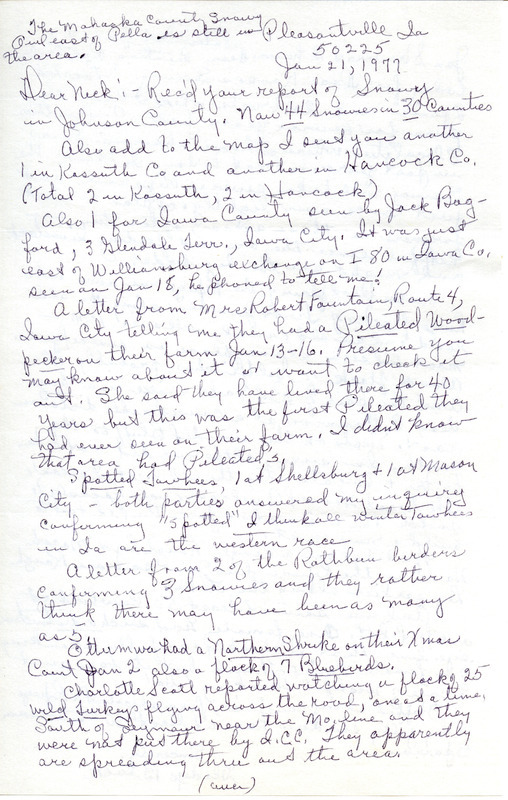 The Mahaska Count Snowy
Owl east of Pella is still in
the area.
Pleasantville Ia
50225
Jan 21, 1977
Dear Nick: - Rec'd your report of Snowy
in Johnson County. Now 44 Snowies in 30 Counties
Also add to the map I sent you another
1 in Kossuth Co and another in Hancock Co.
(Total 2 in Kossuth, 2 in Hancock)
Also 1 for Iowa County seen by Jack Bag-
ford, 3 Glendale Terr., Iowa City. It was just
east of Williamsburg exchange on I 80 in Iowa Co.
seen on Jan 18, he phoned to tell me!
A letter from Mrs Robert Fountain, Route 4,
Iowa City telling me they had a Pileated Wood-
pecker on their farm Jan 13-16. Presume you
may know about it or want to check it
out. She said they have lived there for 40
years but this was the first Pileated they
had ever seen on their farm. I didn't know
that area had Pileated's.
Spotted Towhees, 1 at Shellsburg & 1 at Mason
City - both parties answered my inquiry
confirming "spotted" I think all winter Towhees
in Ia are the western race
A letter from 2 of the Rathbun birders
confirming 3 Snowies and they rather
think there may have been as many
as 5.
Ottumwa had a Northern Shrike on their Xmas
Count Jan 2 also a flock of 7 Bluebirds.
Charlotte Scott reported watching a flock of 25
wild Turkeys flying across the road, one at a time,
South of Seymour near the Mo. line and they
were not put there by I.C.C. They apparently
are spreading thru out the area.
(over)